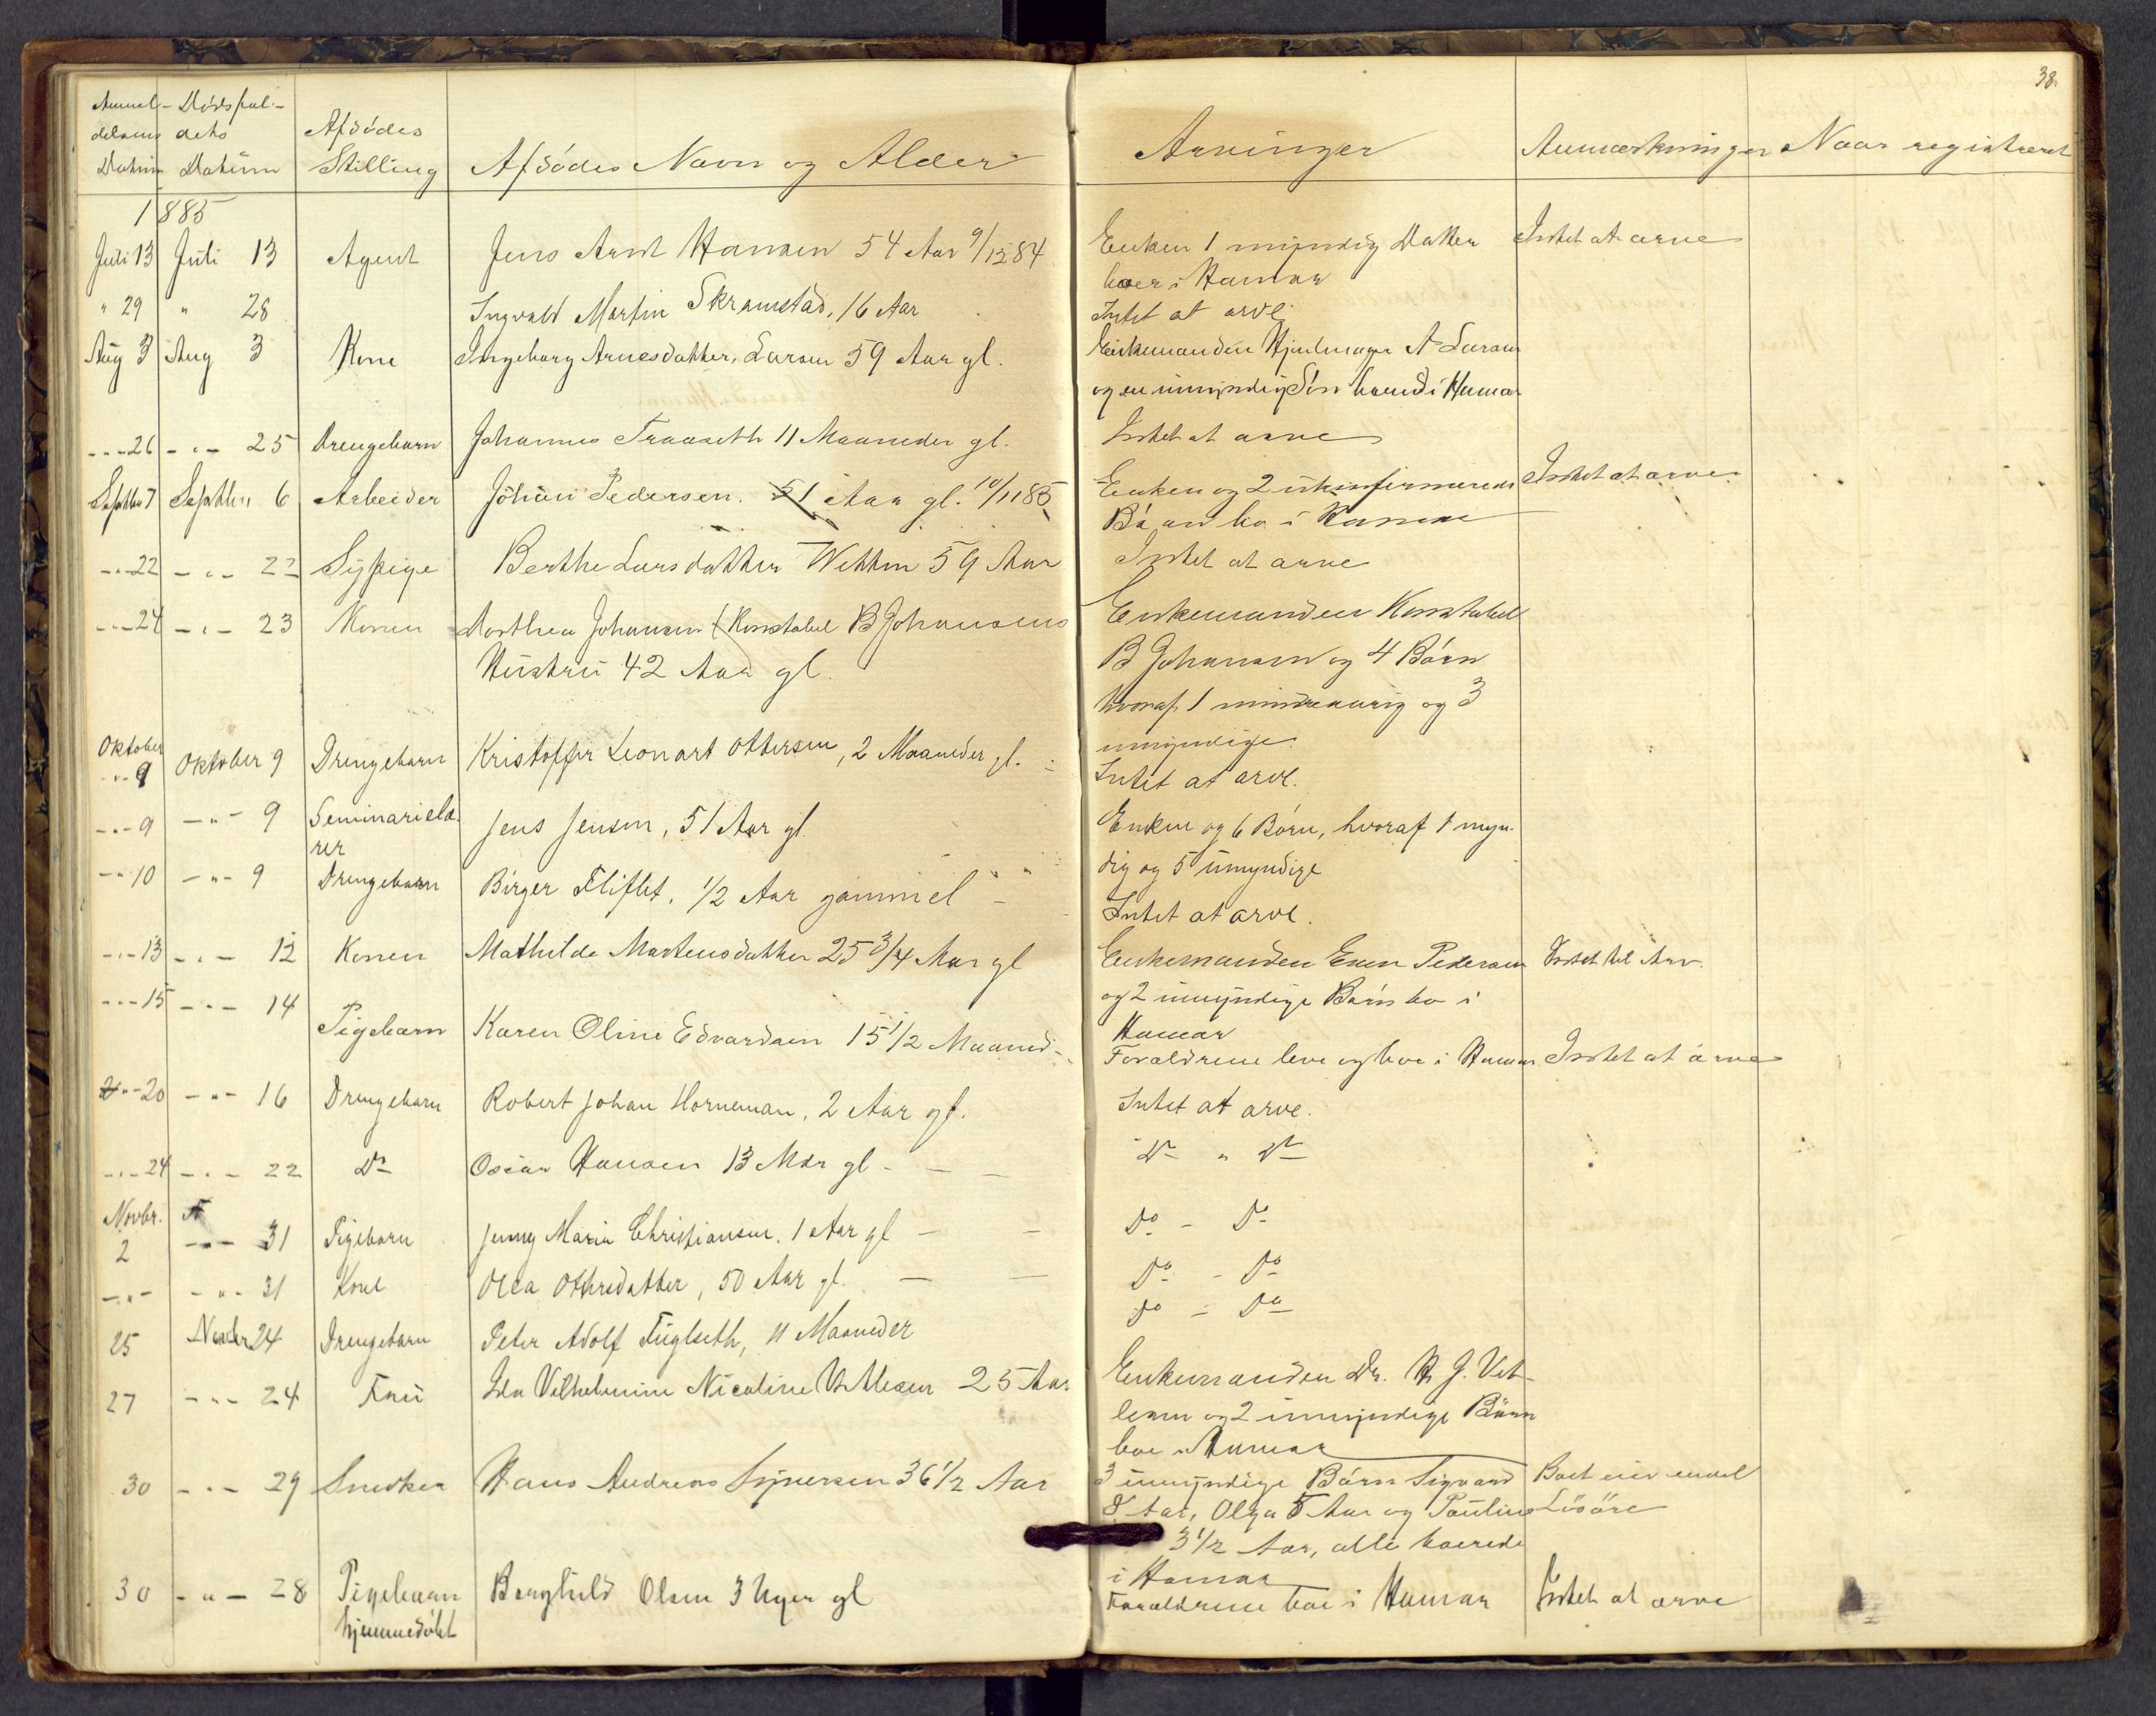 38.
Anmel- Dødsfal- Afdødes
delsens dets
Datum Datum Stilling Afdødes Navn og Alder Arvinger Anmærkninger Naar registreret
1885
Juli 13 Juli 13 Agent Jens Arnt Hansen 54 Aar 9/12 84 Enken 1 myndig Datter Intet at arve
boer i Hamar
" 29 " 28 Ingvald Martin Skramstad, 16 Aar Intet at arve
Aug 3 Aug 3 Kone Ingeborg Arnesdatter, Larsen 59 Aar gl. Enkemanden Hjulmager A Larsen
og en umyndig Søn boend i Hamar
- " - 26 - " - 25 Drengebarn Johannes Fraaseth 11 Maaneder gl. Intet at arve
Septbr 7 Septbr 6 Arbeider Johan Pedersen. 51 Aar gl. 10/11 85 Enken og 2 ukonfirmerede Intet at arve.
Børn bo i Hamar
- " - 22 - " - 22 Sypige Berthe Larsdatter Wetten 59 Aar Intet at arve
- " - 24 - " - 23 Konen Dorthea Johansen (Konstabel B Johansens Enkemanden Konstabel
Hustru 42 Aar gl. B Johansen og 4 Børn
hvoraf 1 mindreaarig og 3
umyndige.
Oktober
- " - 9 Oktober 9 Drengebarn Kristoffer Leonart Ottersen, 2 Maaneder gl. Intet at arve.
- " - 9 - " - 9 Seminarielæ- Jens Jensen, 51 Aar gl. Enken og 6 Børn, hvoraf 1 myn-
rer dig og 5 umyndige
- " 10 - " - 9 Drengebarn Birger Fliflet, 1/2 Aar gammel - Intet at arve.
- " - 13 - " - 12 Konen Mathilde Martensdatter 25 3/4 Aar gl Enkemanden Even Pedersen Intet til Arv.
og 2 umyndige Børn bo i
Hamar
- " - 15 - " - 14 Pigebarn Karen Oline Edvardsen 15 1/2 Maaned- Forældrene leve og boe i Hamar Intet at arve
" - 20 - " - 16 Drengebarn Robert Johan Horneman, 2 Aar gl. Intet at arve.
- " - 24 - " - 22 Do Oscar Hansen 13 Mdr gl - - - Do " Do
Novbr.
2 - " - 31 Pigebarn Jenny Marie Christiansen, 1 Aar gl - - Do - Do
- " - - " - 31 Kone Olea Ottersdatter, 50 Aar gl. - - Do - Do
25 Novbr 24 Drengebarn Peter Adolf Fuglseth, 11 Maaneder Do - Do
27 - " - 24 Frue Ida Vilhelmine Nicoline Vetlesen 25 Aar Enkemanden Dr. H J. Vet-
lesen og 2 umyndige Børn
boe i Hamar
30 - " - 29 Snedker Hans Andreas Syversen 36 1/2 Aar 3 umyndige Børn Sigvard Boet eier endel
8 Aar, Olga 5 Aar og Pauline Løsøre
3 1/2 Aar, alle boende
i Hamar
30 - " - 28 Pigebarn Borghild Olsen 3 Uger gl Forældrene boe i Hamar Intet at arve
hjemmedøbt